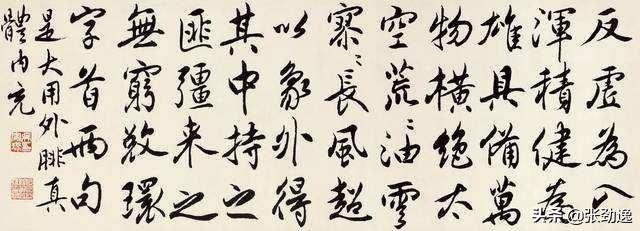 反虛為入
渾積健為
雄具備萬
物橫絕太
空荒〻油雲
寥〻長風超
以象外得
其中持之
匪彊来之
無窮敚環
字首兩句
是大用外腓真
體內充
头条 @张劲逸